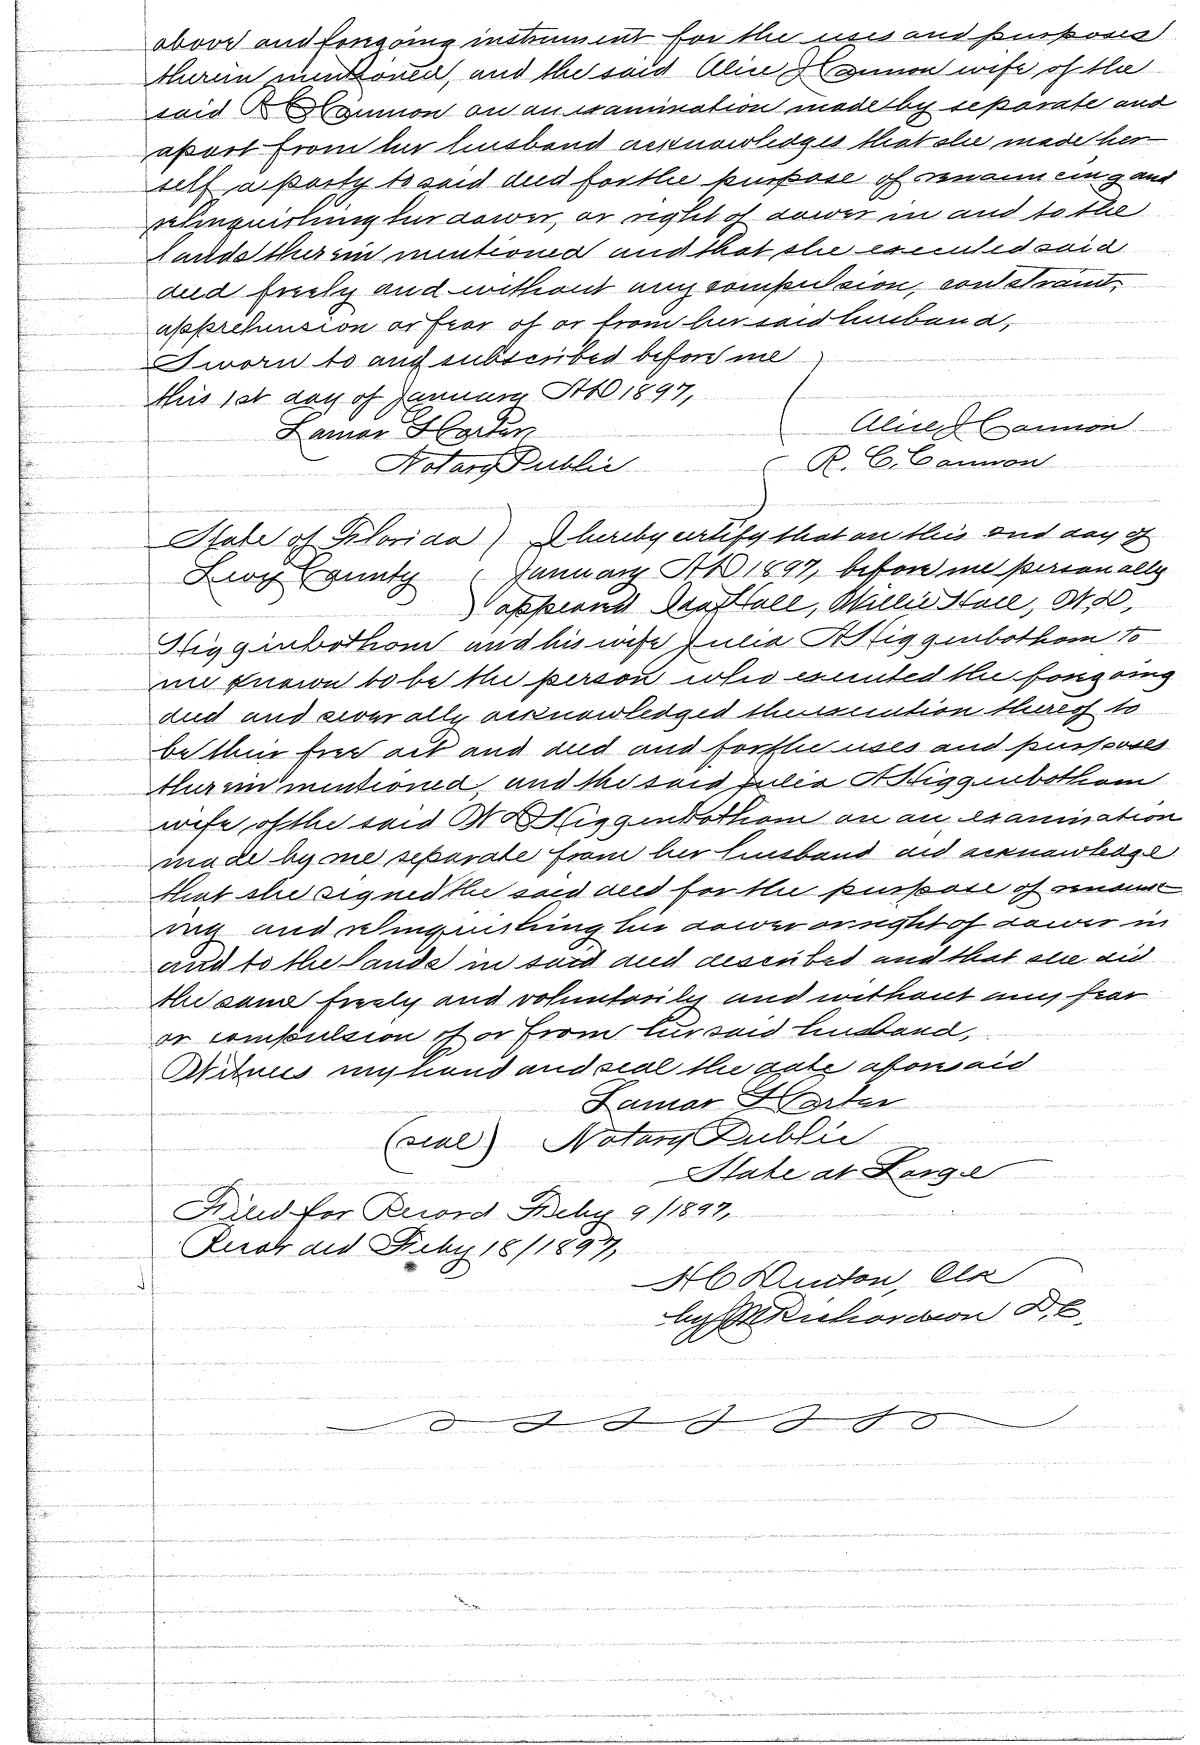 above and foregoing instrument for the uses and purposes
therein mentioned, and the said Alice J Cannon wife of the
said R C Cannon on an examination made by separate and
apart from her husband acknowledges that she made her
self a party to said deed for the purpose of renouncing and
relinquishing her dower, or right of dower in and to the
lands therein mentioned and that she executed said
deed freely and without any compulsion, constraint,
apprehension or fear of or from her said husband,
Sworn to and subscribed before me
this 1st day of January AD 1897,
Alice J Cannon
Lamar Harter
Notary Public R. C. Cannon
State of Florida ) I hereby certify that on this 2nd day of
Levy County ( January AD 1897, before me personally
) appeared Hall, Willie Hall, W. D.
Higginbothom and his wife Julia A Higgenbothom to
me known to be the person who executed the foregoing
deed and severally acknowledged the execution thereof to
be their free act and deed and for the uses and purposes
therein mentioned, and the said Julia A Higgenbothom
wife of the said W D Higgenbothom on an examination
made by me separate from her husband did acknowledge
that she signed the said deed for the purpose of renounc
ing and relinquishing her dower or right of dower in
and to the lands in said deed described and that she did
the same freely and voluntarily and without any fear
or compulsion of or from her said husband,
Witness my hand and seal the date aforesaid
Lamar Harter
(seal) Notary Public
State at Large
Filed for Record Feby 9/1897,
Recorded Feby 18/1897,
Clk
by Richardson D.C.